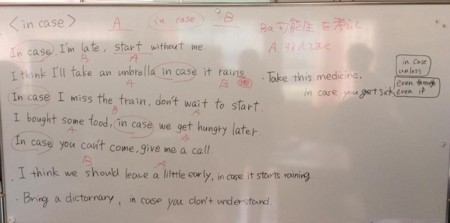 <in case>
A (in case) B
Bの可能性を考えて
Aする
In case I'm late, start without me
B A
I think I'll take an umbrella in case it rains
A B
In case I miss the train, don't wait to start.
B A
I bought some food, in case we get hungry later
A B
In case you can't come, give me a call.
B A
. I think we should leave a little early, in case it starts raining.
. Bring a dictornary, in case you don't understand.
. Take this medicine,
in case you get sick
in case
unless
even though
even if